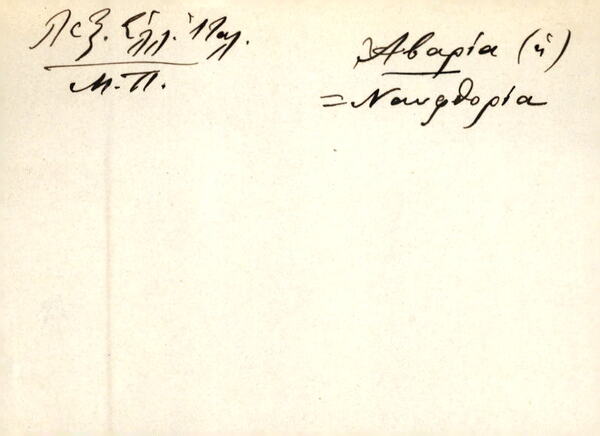 Λεξ. Ἑλλ. Ἰταλ.
Μ.Π.
Ἀβαρία (ἡ)
= Ναυφθορία